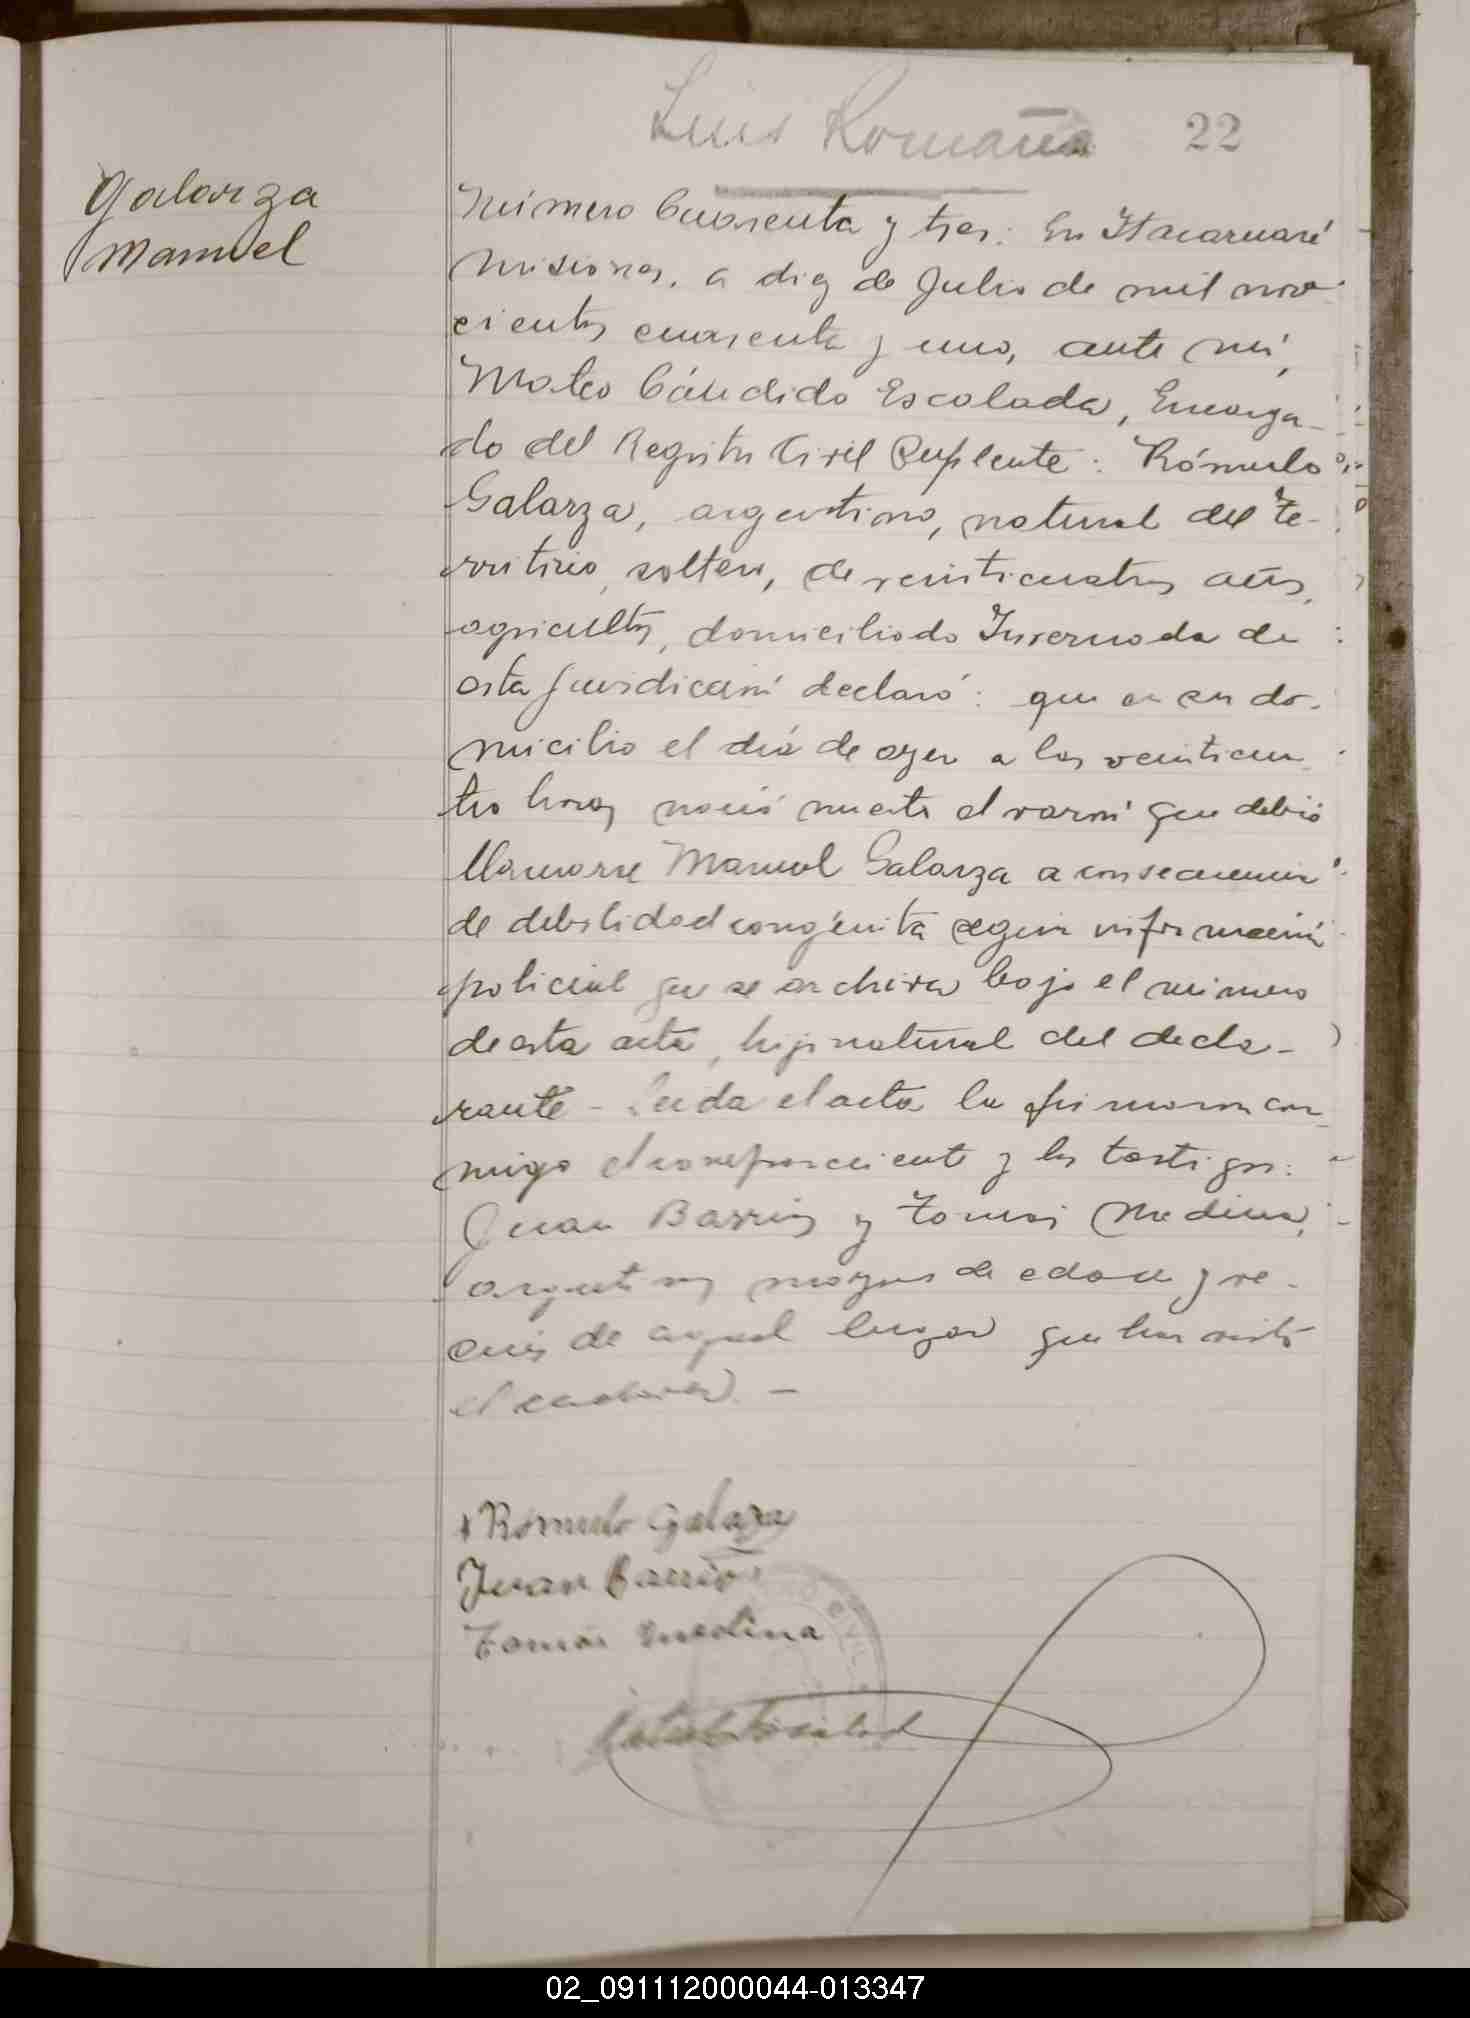 Luis Romaña 22
Galarza
Manuel
Número Cuarenta y tres: En Itacaruaré
Misiones, a diez de Julio de mil nove
cientos cuarenta y uno, ante mí,
Mateo Cándido Escalada, Encarga-
do del Registro Civil Suplente: Rómulo
Galarza, argentino, natural del Te-
rritorio, soltero, de veinticuatro años,
agricultor, domiciliado Invernada de
esta jurisdicción declaró: que en su do-
micilio el día de ayer a las veinticua
tro horas nació muerto el varón que debió
llamarse Manuel Galarza a consecuencia
de debilidad congénita según información
policial que se archiva bajo el número
de esta acta, hijo natural del decla-
rante - Leida el acta la firmaron con
migo el compareciente y los testigos:
Juan Barrios y Tomás Medina,
argentinos mayores de edad y ve-
cinos de aquel lugar que han visto
el cadaver. -
Rómulo Galarza
Juan Barrios
Tomás Medina
CIVIL
02_091112000044-013347